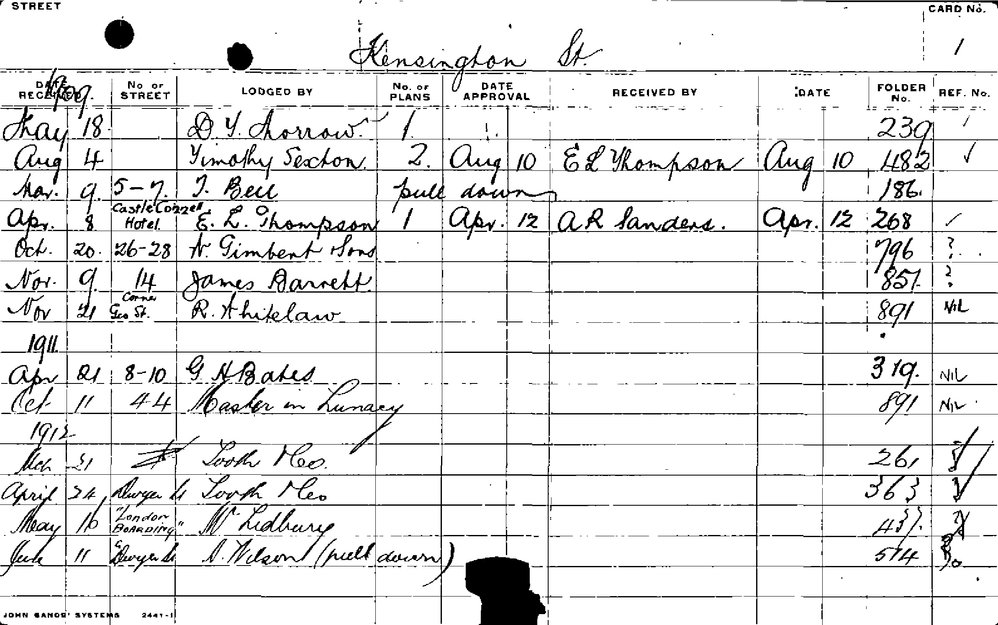 STREET CARD No.
Kensington St. 1
DATE RECEIVED No OF STREET LODGED BY No. OF PLANS DATE APPROVAL RECEIVED BY DATE FOLDER No. REF. No.
1909.
May 18 D. Y. Morrow. 1. 239
Aug 4 Timothy Sexton. 2. Aug 10 E L Thompson Aug 10 482 ✓
Mar. 9. 5-7. T. Bell pull down 186.
Apr. 8 Castle Connell Hotel. E. L. Thompson 1 Apr. 12 A.R Sanders. Apr. 12 268 ✓
Oct. 20. 26-28 Gimbert & Sons 796 ?
Nov. 9 14 James Barrett. 851. ?
Nov 21 Corner Geo St. R. Whitelaw 891 NIL
1911.
Apr 21 8-10 G H Bates 319. NIL
Oct. 11 44 Master in Lunacy 891 NIL.
1912
Mch 21 Tooth & Co. 261
April 24, Dwyer St Tooth & Co 363
May 16 "London BOARDING" Lidbury 437.
June 11 Dwyer St Wilson (pull down) 574
JOHN SANDS' SYSTEMS 2441-1